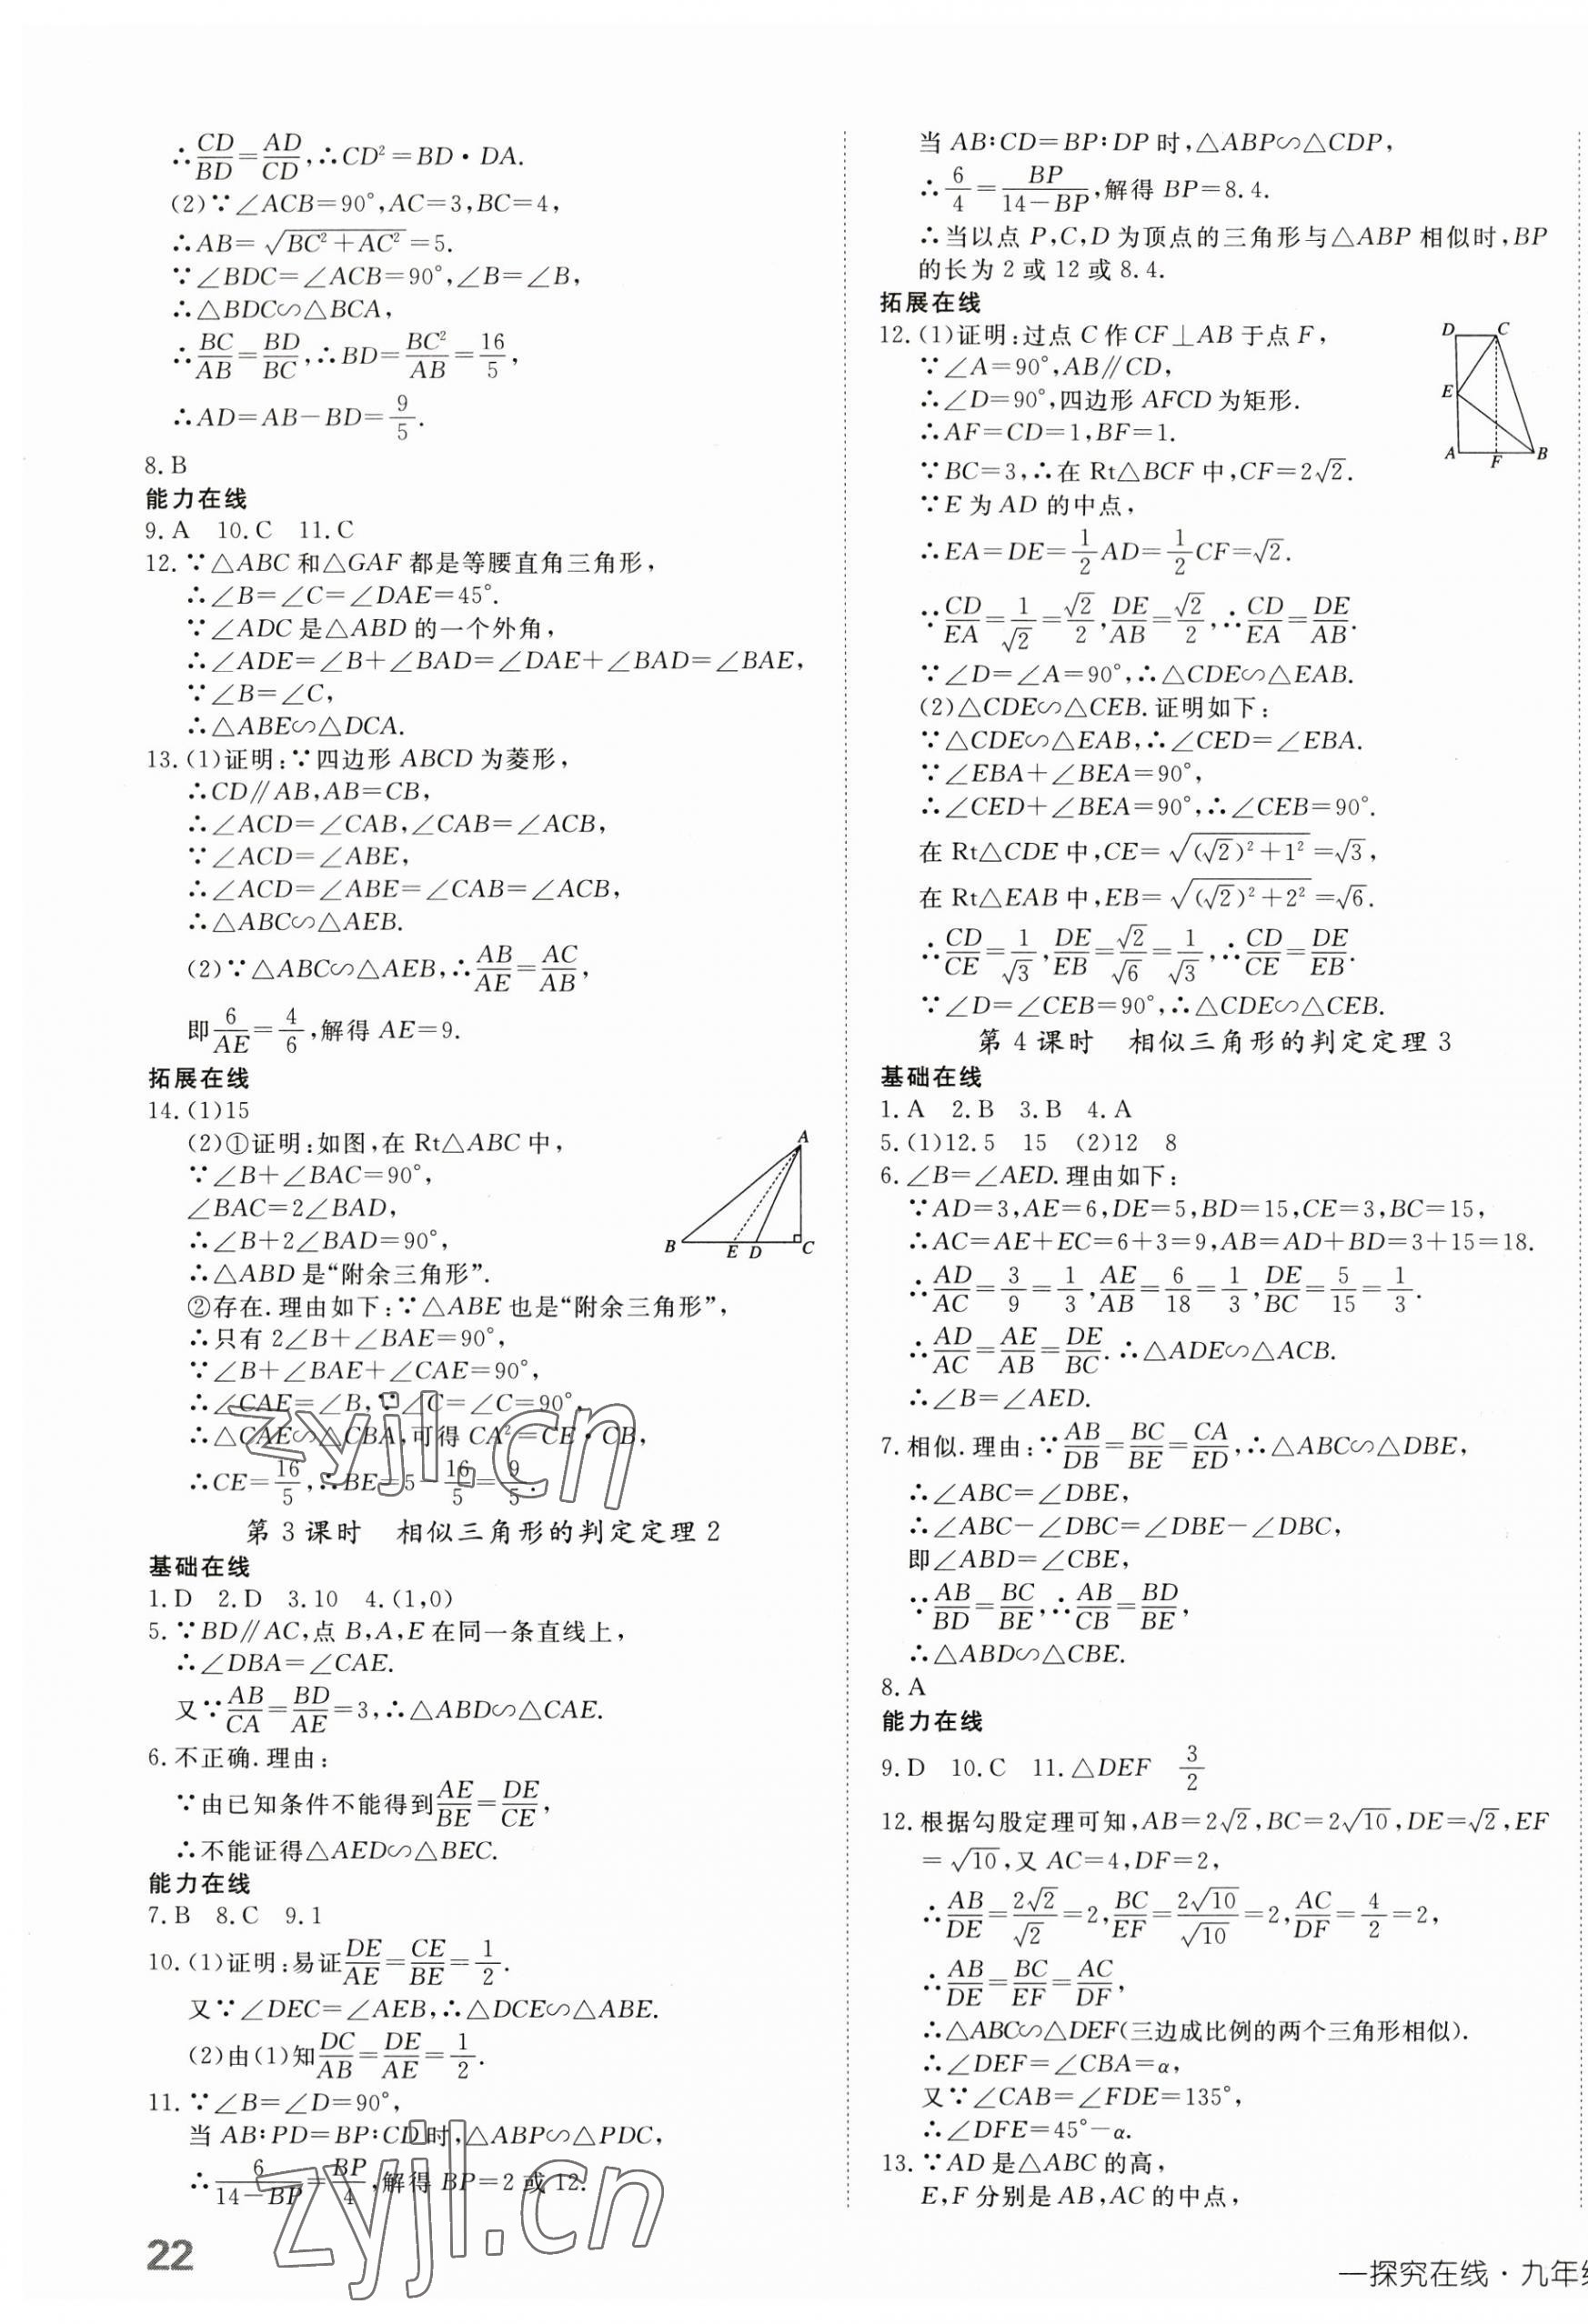 ∴CD/BD=AD/CD,∴CD²=BD·DA.
(2)∵∠ACB=90°,AC=3,BC=4,
∴AB=√(BC²+AC²)=5.
∵∠BDC=∠ACB=90°,∠B=∠B,
∴△BDC∽△BCA,
∴BC/AB=BD/BC,∴BD=BC²/AB=16/5,
∴AD=AB-BD=9/5.
8.B
能力在线
9.A 10.C 11.C
12.∵△ABC和△GAF都是等腰直角三角形,
∴∠B=∠C=∠DAE=45°.
∵∠ADC是△ABD的一个外角,
∴∠ADE=∠B+∠BAD=∠DAE+∠BAD=∠BAE,
∵∠B=∠C,
∴△ABE∽△DCA.
13.(1)证明:∵四边形ABCD为菱形,
∴CD∥AB,AB=CB,
∴∠ACD=∠CAB,∠CAB=∠ACB,
∵∠ACD=∠ABE,
∴∠ACD=∠ABE=∠CAB=∠ACB,
∴△ABC∽△AEB.
(2)∵△ABC∽△AEB,∴AB/AE=AC/AB,
即6/AE=4/6,解得AE=9.
拓展在线
14.(1)15
(2)①证明:如图,在Rt△ABC中,
∵∠B+∠BAC=90°,
∠BAC=2∠BAD,
∴∠B+2∠BAD=90°,
∴△ABD是“附余三角形”.
A
B E D C
②存在.理由如下:∵△ABE也是“附余三角形”,
∴只有2∠B+∠BAE=90°,
∵∠B+∠BAE+∠CAE=90°,
∴∠CAE=∠B,∵∠C=∠C=90°,
∴△CAE∽△CBA,可得CA²=CE·CB,
∴CE=16/5,∴BE=5-16/5=9/5.
第3课时 相似三角形的判定定理2
基础在线
1.D 2.D 3.10 4.(1,0)
5.∵BD∥AC,点B,A,E在同一条直线上,
∴∠DBA=∠CAE.
又∵AB/CA=BD/AE=3,∴△ABD∽△CAE.
6.不正确.理由:
∵由已知条件不能得到AE/BE=DE/CE,
∴不能证得△AED∽△BEC.
能力在线
7.B 8.C 9.1
10.(1)证明:易证DE/AE=CE/BE=1/2.
又∵∠DEC=∠AEB,∴△DCE∽△ABE.
(2)由(1)知DC/AB=DE/AE=1/2.
11.∵∠B=∠D=90°,
当AB:PD=BP:CD时,△ABP∽△PDC,
∴6/(14-BP)=BP/4,解得BP=2或12.
22
当AB:CD=BP:DP时,△ABP∽△CDP,
∴6/4=BP/(14-BP),解得BP=8.4.
∴当以点P,C,D为顶点的三角形与△ABP相似时,BP
的长为2或12或8.4.
拓展在线
12.(1)证明:过点C作CF⊥AB于点F,
∵∠A=90°,AB∥CD,
∴∠D=90°,四边形AFCD为矩形.
∴AF=CD=1,BF=1.
D C
E
A F B
∵BC=3,∴在Rt△BCF中,CF=2√2.
∵E为AD的中点,
∴EA=DE=1/2AD=1/2CF=√2.
∵CD/EA=1/√2=√2/2,DE/AB=√2/2,∴CD/EA=DE/AB.
∵∠D=∠A=90°,∴△CDE∽△EAB.
(2)△CDE∽△CEB.证明如下:
∵△CDE∽△EAB,∴∠CED=∠EBA.
∵∠EBA+∠BEA=90°,
∴∠CED+∠BEA=90°,∴∠CEB=90°.
在Rt△CDE中,CE=√((√2)²+1²)=√3,
在Rt△EAB中,EB=√((√2)²+2²)=√6.
∴CD/CE=1/√3,DE/EB=√2/√6=1/√3,∴CD/CE=DE/EB.
∵∠D=∠CEB=90°,∴△CDE∽△CEB.
第4课时 相似三角形的判定定理3
基础在线
1.A 2.B 3.B 4.A
5.(1)12.5 15 (2)12 8
6.∠B=∠AED.理由如下:
∵AD=3,AE=6,DE=5,BD=15,CE=3,BC=15,
∴AC=AE+EC=6+3=9,AB=AD+BD=3+15=18.
∴AD/AC=3/9=1/3,AE/AB=6/18=1/3,DE/BC=5/15=1/3.
∴AD/AC=AE/AB=DE/BC.∴△ADE∽△ACB.
∴∠B=∠AED.
7.相似.理由:∵AB/DB=BC/BE=CA/ED,∴△ABC∽△DBE,
∴∠ABC=∠DBE,
∴∠ABC-∠DBC=∠DBE-∠DBC,
即∠ABD=∠CBE,
∵AB/BD=BC/BE,∴AB/CB=BD/BE,
∴△ABD∽△CBE.
8.A
能力在线
9.D 10.C 11.△DEF 3/2
12.根据勾股定理可知,AB=2√2,BC=2√10,DE=√2,EF
=√10,又AC=4,DF=2,
∴AB/DE=2√2/√2=2,BC/EF=2√10/√10=2,AC/DF=4/2=2,
∴AB/DE=BC/EF=AC/DF,
∴△ABC∽△DEF(三边成比例的两个三角形相似).
∴∠DEF=∠CBA=α,
又∵∠CAB=∠FDE=135°,
∴∠DFE=45°-α.
13.∵AD是△ABC的高,
E,F分别是AB,AC的中点,
一探究在线·九年
zyjl.cn
zyjl.cn